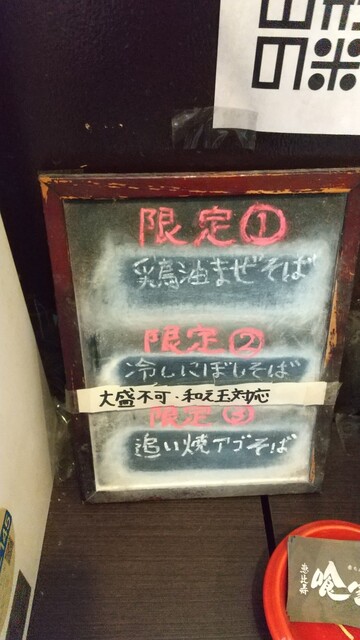 の米
限定①
鶏油まぜそば
限定②
冷しにぼしそば
大盛不可・和え玉対応
限定③
追い焼アゴそば
喰